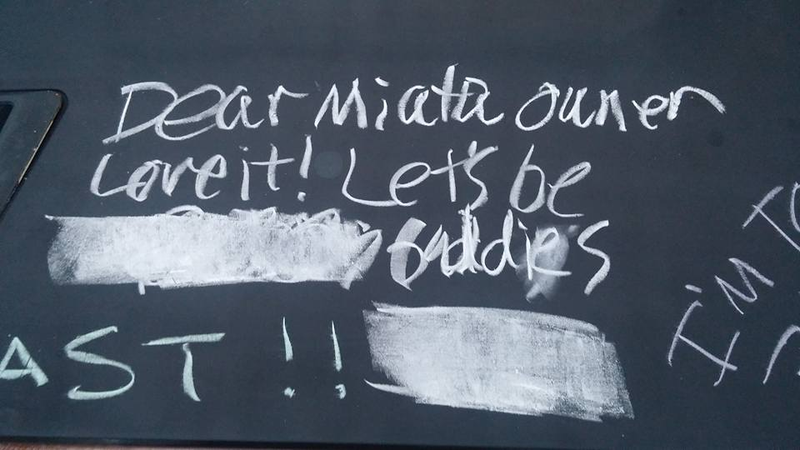 Dear Miata owner
Love it! Let's be
buddies
AST!!
I'M TO